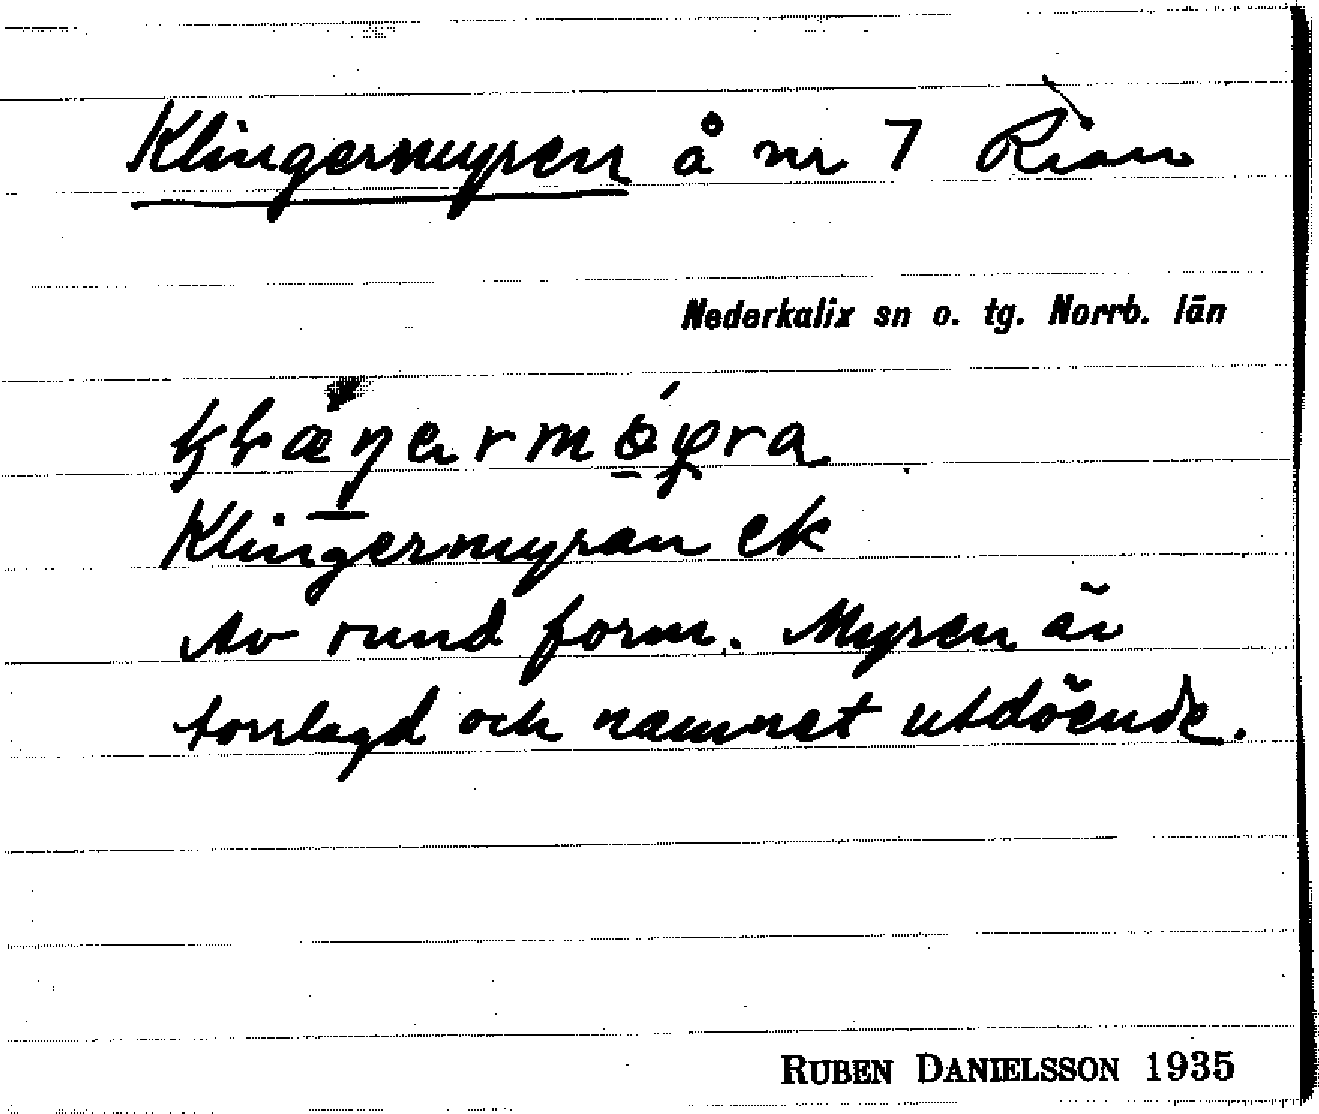 Klingermyren å nr 7 Rian
Nederkalix sn o. tg. Norrb. län
Klingermyran ek
Av rund form. Myren är
torrlagd och namnet utdöende.
RUBEN DANIELSSON 1935